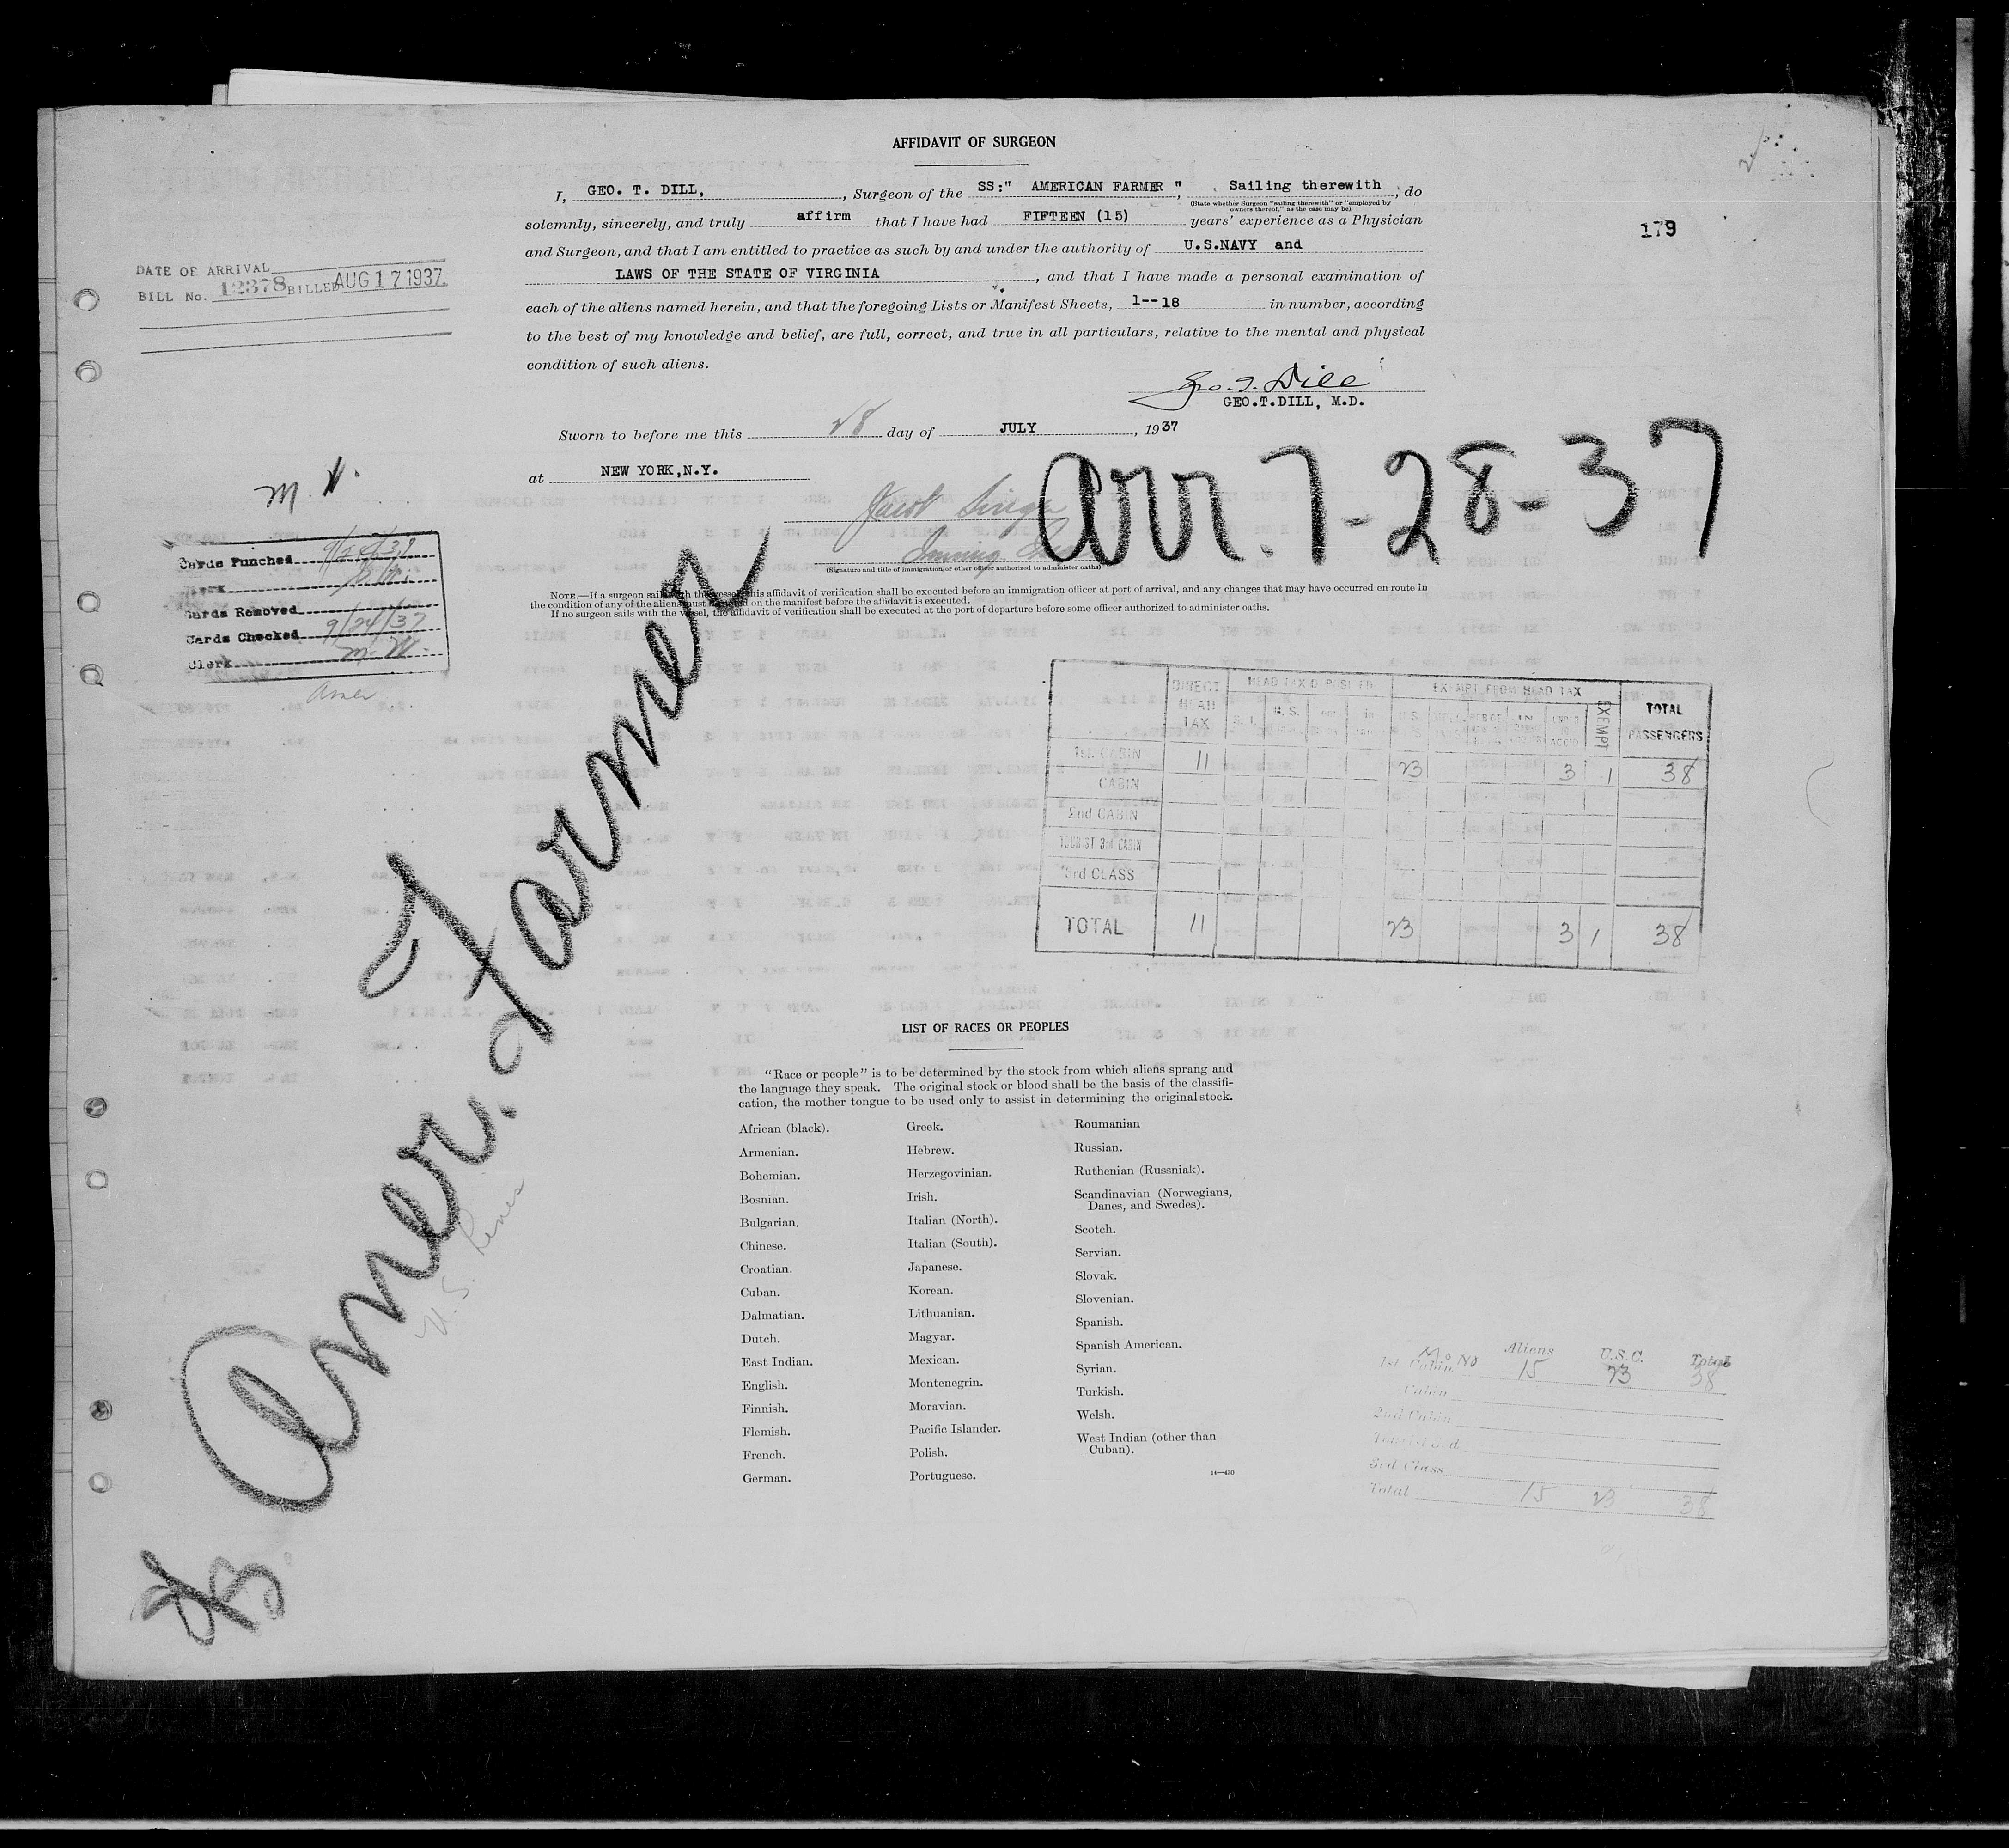 AFFIDAVIT OF SURGEON
I, GEO. T. DILL, , Surgeon of the SS:" AMERICAN FARMER ", Sailing therewith , do
(State whether Surgeon "sailing therewith" or "employed by
owners thereof," as the case may be)
solemnly, sincerely, and truly affirm that I have had FIFTEEN (15) years' experience as a Physician
and Surgeon, and that I am entitled to practice as such by and under the authority of U.S.NAVY and
LAWS OF THE STATE OF VIRGINIA , and that I have made a personal examination of
each of the aliens named herein, and that the foregoing Lists or Manifest Sheets, 1--18 in number, according
to the best of my knowledge and belief, are full, correct, and true in all particulars, relative to the mental and physical
condition of such aliens.
Geo. T. Dill
GEO.T.DILL, M.D.
Sworn to before me this 28 day of JULY , 1937
at NEW YORK,N.Y.
179
DATE OF ARRIVAL
BILL No. 12378 BILLED AUG 17 1937
Arr. 7-28-37
Jacob
Immig.
(Signature and title of immigration or other officer authorized to administer oaths)
NOTE.—If a surgeon sails with the vessel, this affidavit of verification shall be executed before an immigration officer at port of arrival, and any changes that may have occurred on route in
the condition of any of the aliens must be noted on the manifest before the affidavit is executed.
If no surgeon sails with the vessel, the affidavit of verification shall be executed at the port of departure before some officer authorized to administer oaths.
M. W.
Cards Punched
Clerk
Cards Removed
Cards Checked 9/24/37
Clerk M. W.
Amer
Amer. Farmer
U.S. Lines
DIRECT HEAD TAX
HEAD TAX DEPOSITED
EXEMPT FROM HEAD TAX
EXEMPT
TOTAL PASSENGERS
1st CABIN 11 23 3 1 38
CABIN
2nd CABIN
TOURIST 3rd CABIN
3rd CLASS
TOTAL 11 23 3 1 38
LIST OF RACES OR PEOPLES
"Race or people" is to be determined by the stock from which aliens sprang and
the language they speak. The original stock or blood shall be the basis of the classifi-
cation, the mother tongue to be used only to assist in determining the original stock.
African (black).
Armenian.
Bohemian.
Bosnian.
Bulgarian.
Chinese.
Croatian.
Cuban.
Dalmatian.
Dutch.
East Indian.
English.
Finnish.
Flemish.
French.
German.
Greek.
Hebrew.
Herzegovinian.
Irish.
Italian (North).
Italian (South).
Japanese.
Korean.
Lithuanian.
Magyar.
Mexican.
Montenegrin.
Moravian.
Pacific Islander.
Polish.
Portuguese.
Roumanian
Russian.
Ruthenian (Russniak).
Scandinavian (Norwegians,
Danes, and Swedes).
Scotch.
Servian.
Slovak.
Slovenian.
Spanish.
Spanish American.
Syrian.
Turkish.
Welsh.
West Indian (other than
Cuban).
14—430
Aliens U.S.C. Total
1st Cabin 15 23 38
Cabin
2nd Cabin
Tourist 3rd
3rd Class
Total 15 23 38